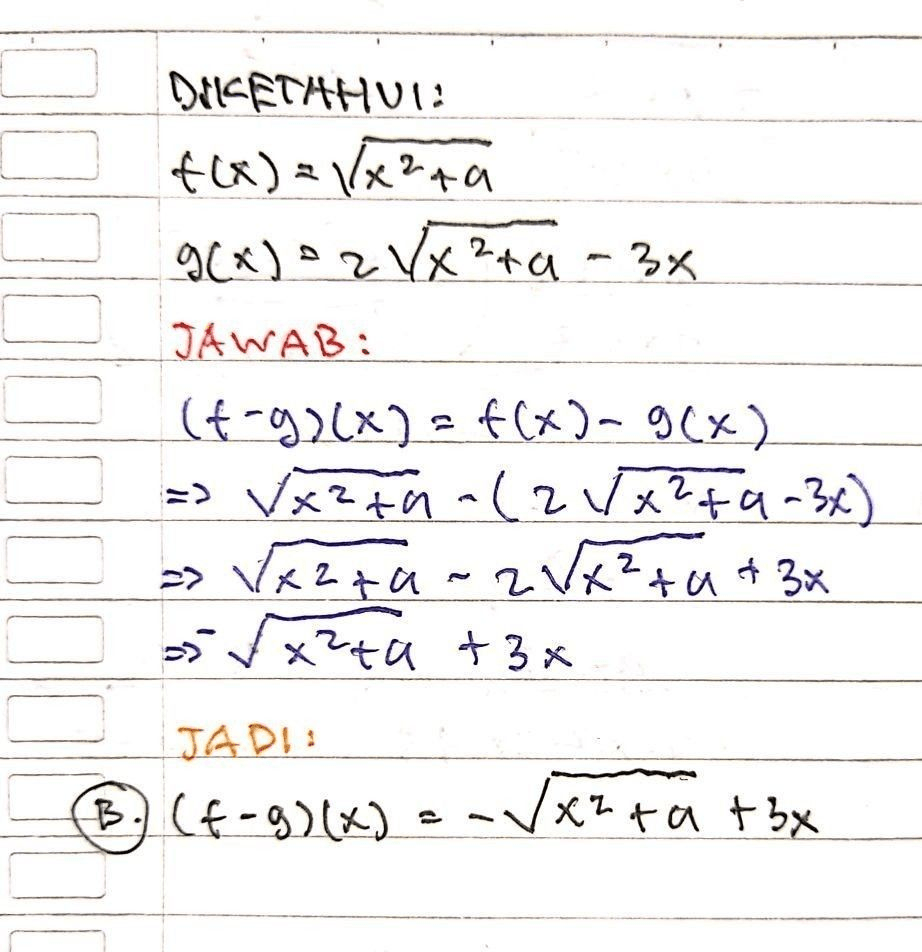 DIKETAHUI:
f(x) = √x²+a
g(x) = 2√x²+a - 3x
JAWAB:
(f-g)(x) = f(x) - g(x)
=> √x²+a - (2√x²+a - 3x)
=> √x²+a - 2√x²+a + 3x
=> -√x²+a + 3x
JADI:
B. (f-g)(x) = -√x²+a + 3x